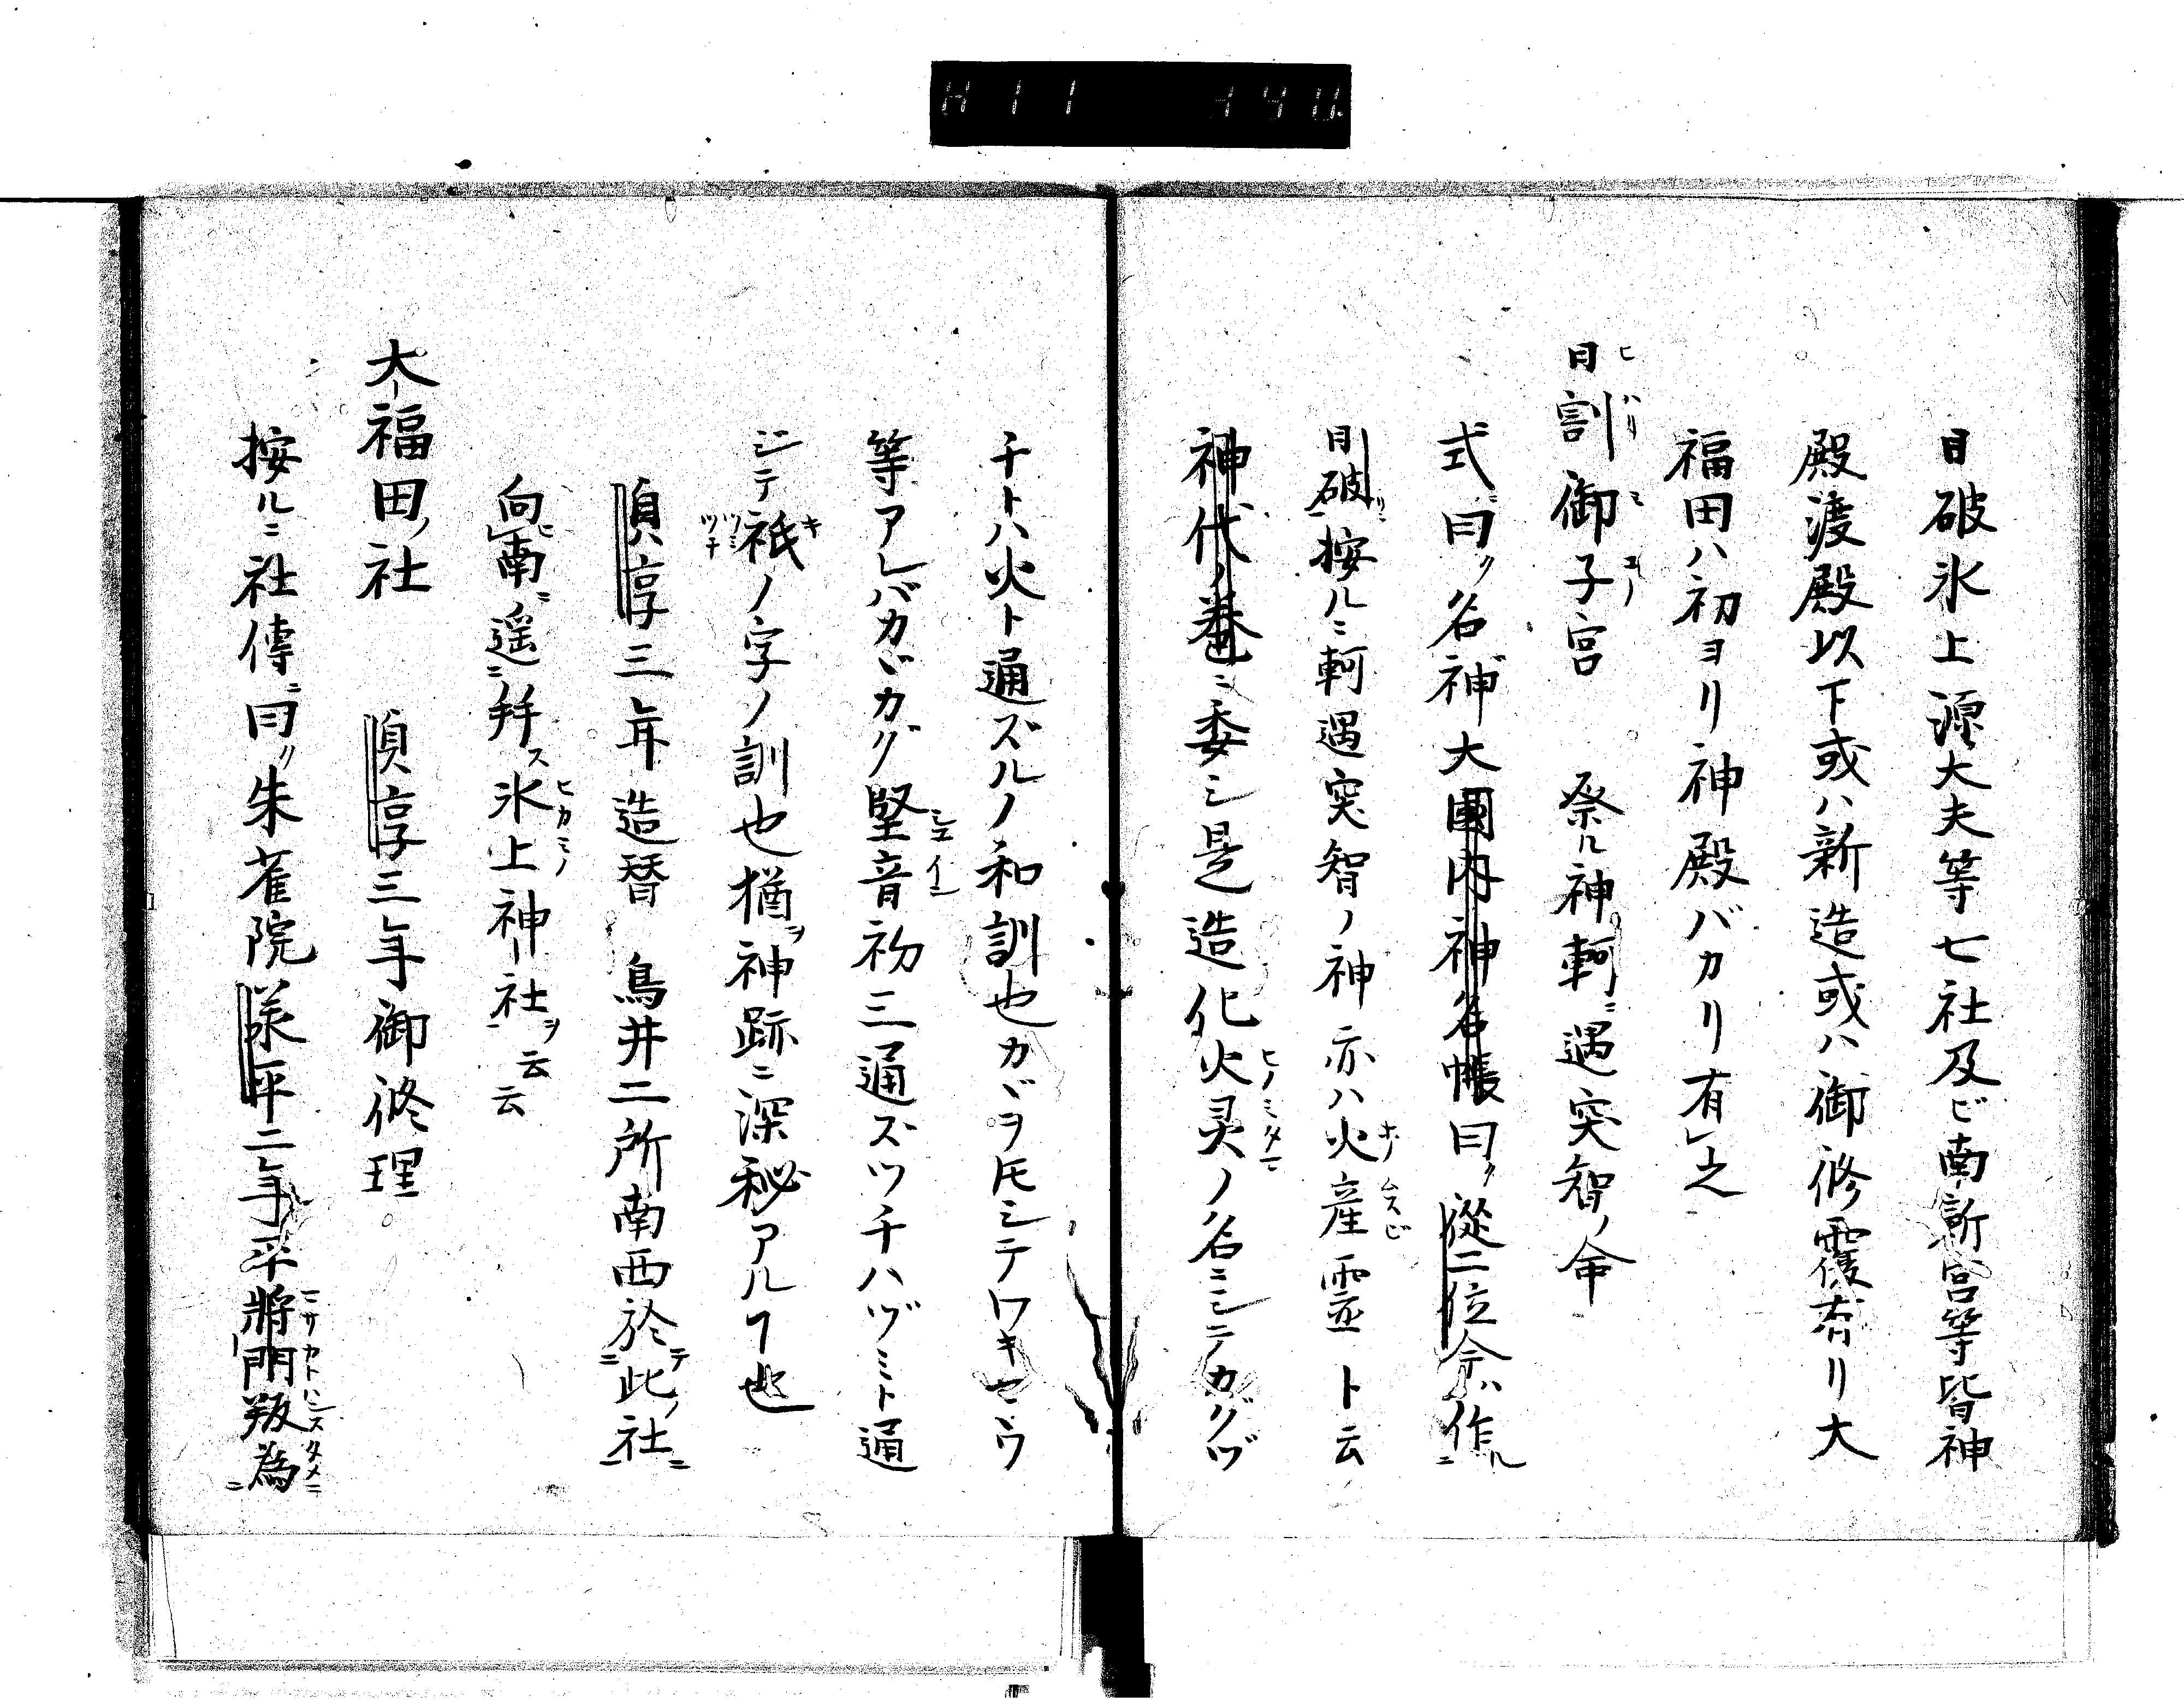 日破氷上源大夫等七社及ビ南新宮等皆神
殿渡殿以下或ハ新造或ハ御修覆有リ大
福田ハ初ヨリ神殿バカリ有レ之
日割御子宮　祭ル神軻遇突智ノ命
式曰ク名神大國内神名帳曰ク從二位今ハ作ル
日破按ルニ軻遇突智ノ神亦ハ火産霊ト云
神代ノ巻ニ委シ是造化火灵ノ名ニシテカグヅ
チトハ火ト通ズルノ和訓也カヾヲ
等アレバカヾカグ堅音初三通ズツチハヅミト通
シテ祇ノ字ノ訓也猶ヲ神跡ニ深秘アルヿ也
貞享三年造替　鳥井二所南西於テ此ノ社ニ
向南ニ遥ニ拜ス氷上神社ヲ云云
大福田ノ社　貞享三年御修理
按ルニ社傳ニ曰ク朱雀院承平二年平將門叛為ニ